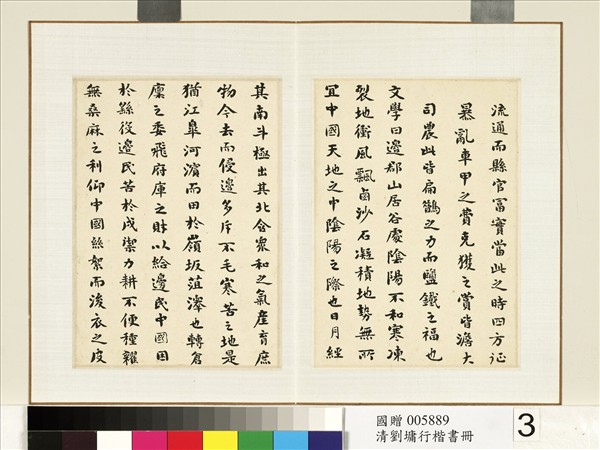 流通而縣官富實當此之時四方征
暴亂車甲之費克獲之賞皆澹大
司農此皆扁鵲之力而鹽鐵之福也
文學曰邊郡山居谷處陰陽不和寒凍
裂地衝風飄鹵沙石凝積地勢無所
宜中國天地之中陰陽之際也日月經
其南斗極出其北含衆和之氣產育庶
物今去而侵邊多斥不毛寒苦之地是
猶江皋河濱而田於嶺坂菹澤也轉倉
廩之委飛府庫之財以給邊民中國困
於繇役邊民苦於戍禦力耕不便種糴
無桑麻之利仰中國絲絮而後衣之皮
國贈 005889
清劉墉行楷書冊
3